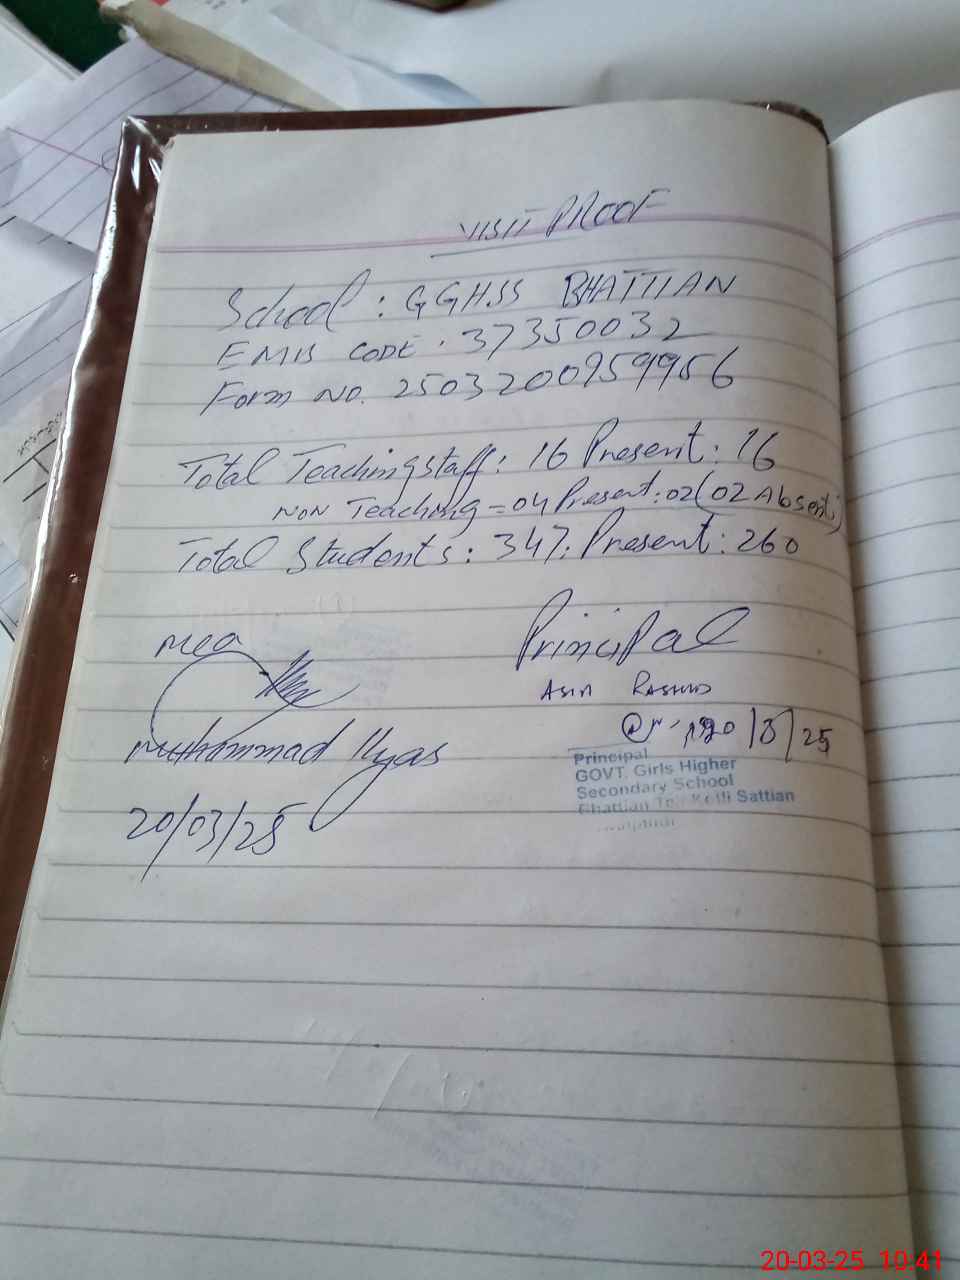 VISIT PROOF
School : GGHSS BHATTIAN
EMIS CODE : 37350032
Form NO. 2503200959956
Total Teaching staff : 16 Present : 16
NON Teaching = 04 Present : 02 (02 Absent)
Total Students : 347 : Present : 260
MEA
Muhammad Ilyas
20/03/25
Principal
Rashid
20/3/25
Principal
GOVT. Girls Higher
Secondary School
Bhattian Sattian
20-03-25 10:41